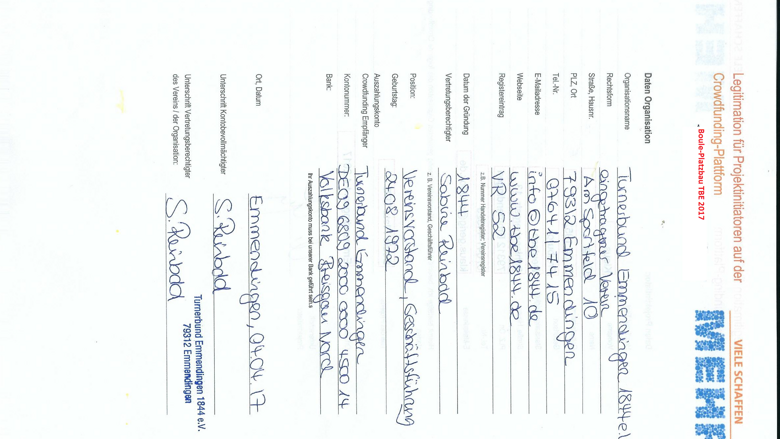 Legitimation für Projektinitiatoren auf der
Crowdfunding-Plattform
VIELE SCHAFFEN
MEHR
Boule-Platzbau TBE 2017
Daten Organisation
Organisationsname Turnerbund Emmendingen 1844 e.V
Rechtsform eingetragener Verein
Straße, Hausnr. Am Sportfeld 10
PLZ, Ort 79312 Emmendingen
Tel.-Nr. 07641/7415
E-Mailadresse info@tbe1844.de
Webseite www.tbe1844.de
Registereintrag VR 52
z.B. Nummer Handelsregister, Vereinsregister
Datum der Gründung 1844
Vertretungsberechtigter Sabine Reinbold
z. B. Vereinsvorstand, Geschäftsführer
Position: Vereinsvorstand, Geschäftsführung
Geburtstag: 24.08.1972
Auszahlungskonto
Crowdfunding Empfänger Turnerbund Emmendingen
Kontonummer: DE09 6809 2000 0000 4500 14
Bank: Volksbank Breisgau Nord
Ihr Auszahlungskonto muss bei unserer Bank geführt sein.
Ort, Datum Emmendingen, 04.04.17
Unterschrift Kontobevollmächtigter S. Reinbold
Turnerbund Emmendingen 1844 e.V.
79312 Emmendingen
Unterschrift Vertretungsberechtigter
des Vereins / der Organisation: S. Reinbold